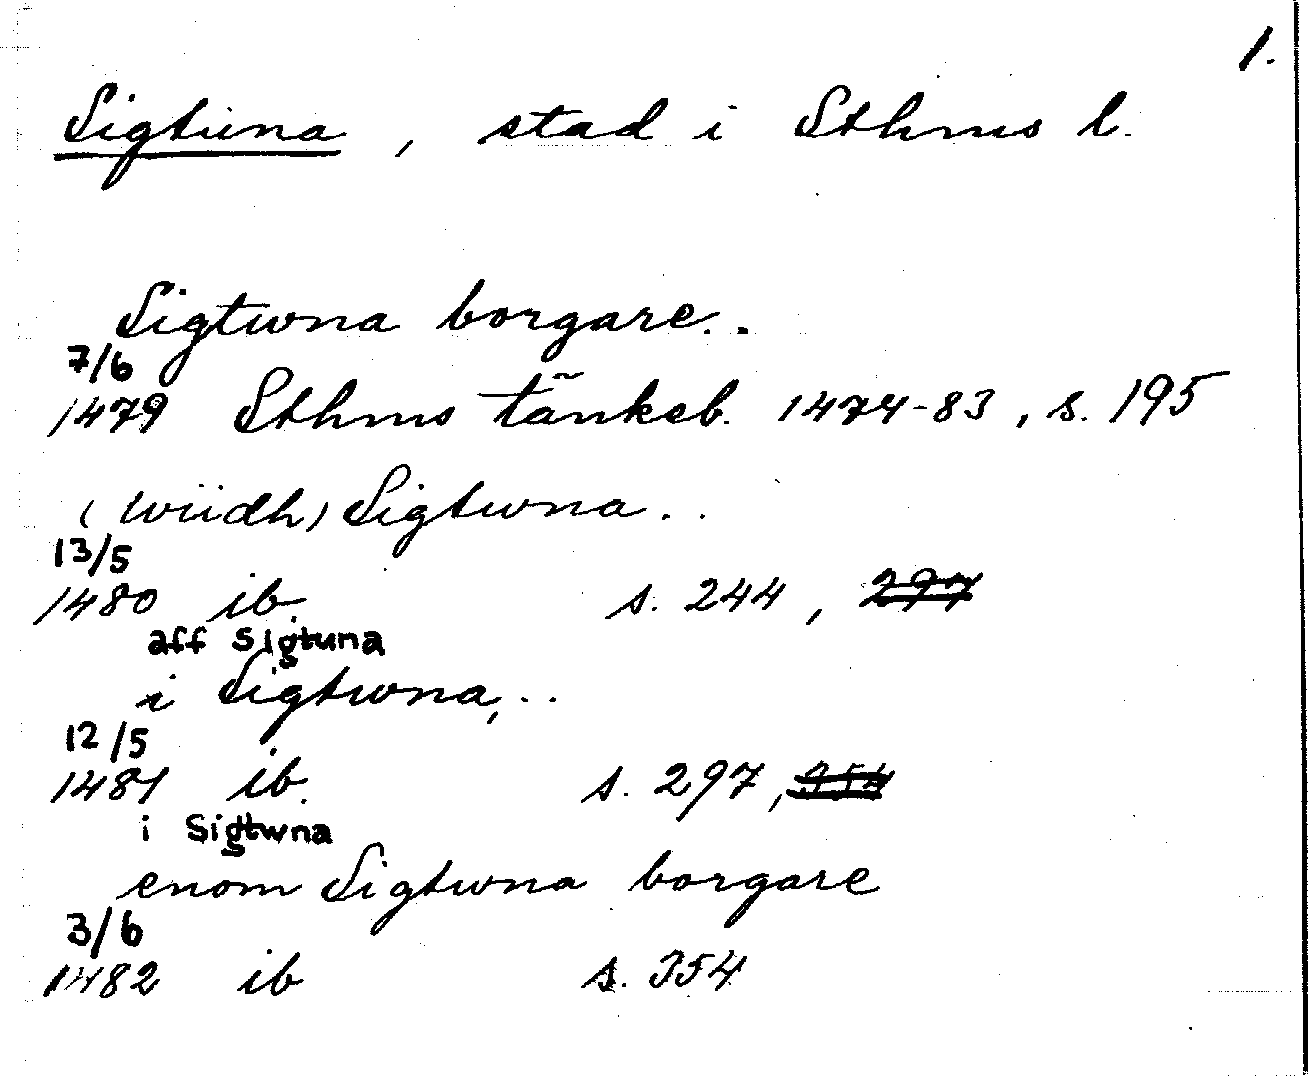 1.
Sigtuna, stad i Sthms l.
Sigtwna borgare..
7/6
1479 Sthms tänkeb. 1474-83, s. 195
(wiidh) Sigtwna..
13/5
1480 ib. s. 244, 297
aff Sigtuna
i Sigtwna,..
12/5
1481 ib. s. 297, 354
i Sigtwna
enom Sigtwna borgare
3/6
1482 ib s. 354